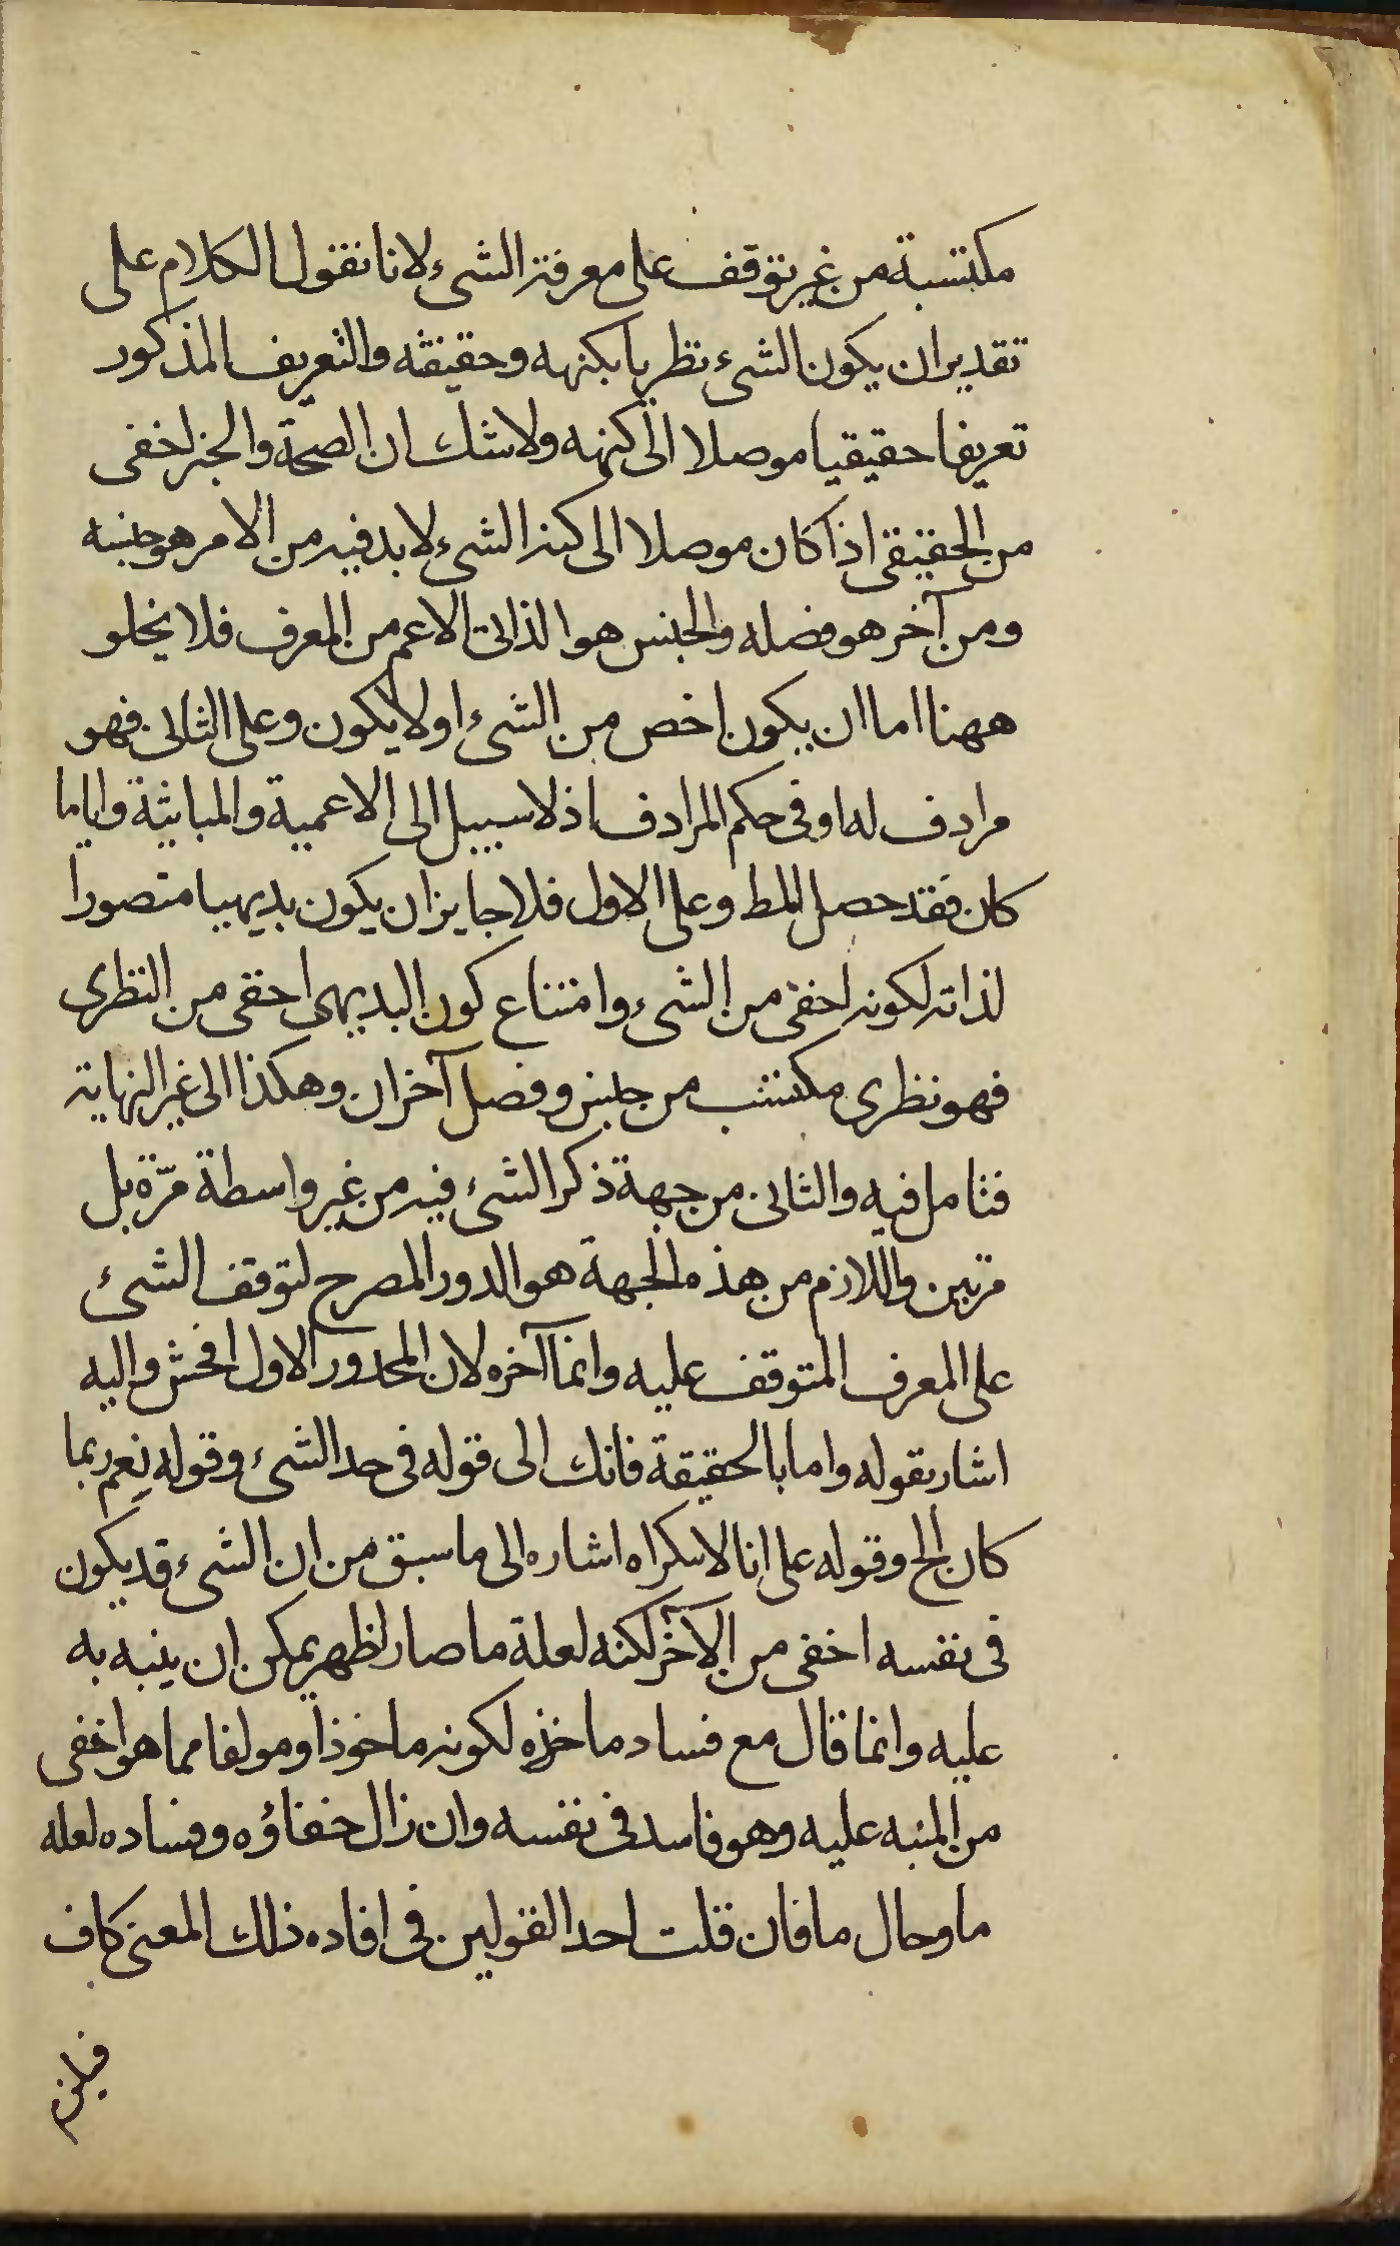 مكتسبة من غير توقف على معرفة الشىء لانا نقول الكلام على
تقدير ان يكون الشىء نظريا بكنهه وحقيقته والتعريف المذكور
تعريفا حقيقيا موصلا الى كنهه ولا شك ان الصحة والخبر اخفى
من الحقيقى اذا كان موصلا الى كنه الشىء لا بد فيه من الامر هو جنسه
ومن آخر هو فصله والجنس هو الذاتى الاعم من المعرف فلا يخلو
ههنا اما ان يكون اخص من الشىء اولا يكون وعلى الثانى فهو
مرادف له او فى حكم المرادف اذ لا سبيل الى الاعمية والمباينة واياما
كان فقد حصل المط وعلى الاول فلا جايز ان يكون بديهيا متصورا
لذاته لكونه اخفى من الشىء وامتناع كون البديهى اخفى من النظرى
فهو نظرى مكتسب من جنس وفصل آخران وهكذا الى غير النهاية
فتامل فيه والثانى من جهة ذكر الشىء فيه من غير واسطة مرّة بل
مرتين واللازم من هذه الجهة هو الدور المصرح لتوقف الشىء
على المعرف المتوقف عليه وانما آخره لان المحدور الاول افحش واليه
اشار بقوله واما بالحقيقة فانك الى قوله فى حد الشىء وقوله نعم ربما
كان الخ وقوله على انا لا ننكر اه اشاره الى ما سبق من ان الشىء قد يكون
فى نفسه اخفى من الآخر لكنه لعلة ما صار اظهر يمكن ان ينبه به
عليه وانما قال مع فساد ماخذه لكونه ماخوذا ومولفا مما هو اخفى
من المنبه عليه وهو فاسد فى نفسه وان زال خفاؤه وفساده لعله
ما وحال ما فان قلت احد القولين فى افاده ذلك المعنى كاف
فيلزم